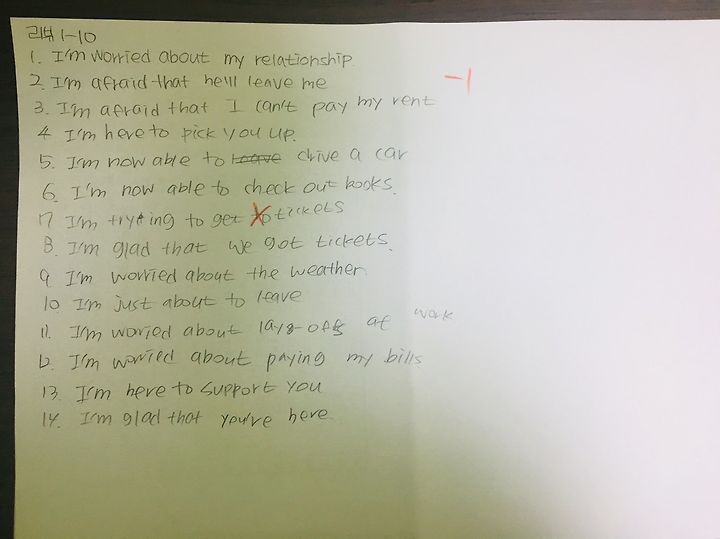 리뷰 1-10
1. I'm worried about my relationship.
2. I'm afraid that he'll leave me
-1
3. I'm afraid that I can't pay my rent
4 I'm here to pick you up.
5. I'm now able to leave drive a car
6. I'm now able to check out books.
7 I'm trying to get to tickets
8. I'm glad that we got tickets.
9 I'm worried about the weather.
10 I'm just about to leave
11. I'm woried about lay-offs at work
12. I'm worried about paying my bills
13. I'm here to support you
14. I'm glad that you're here.